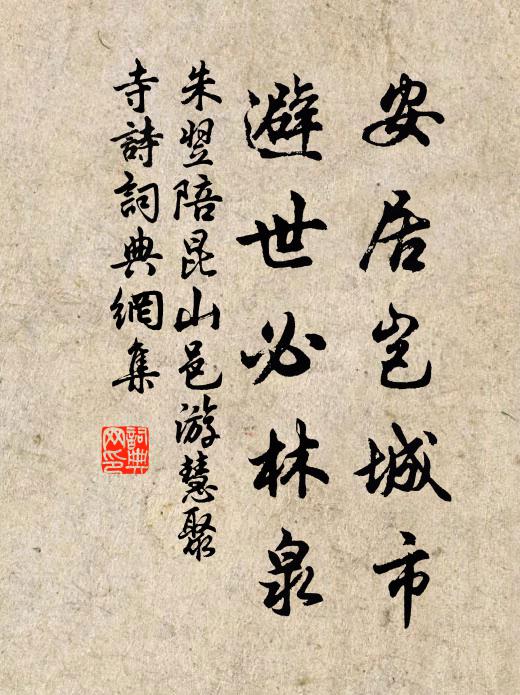 安居岂城市
避世必林泉
朱翌陪昆山邑游慧聚
寺詩詞典網集
詞典
网印